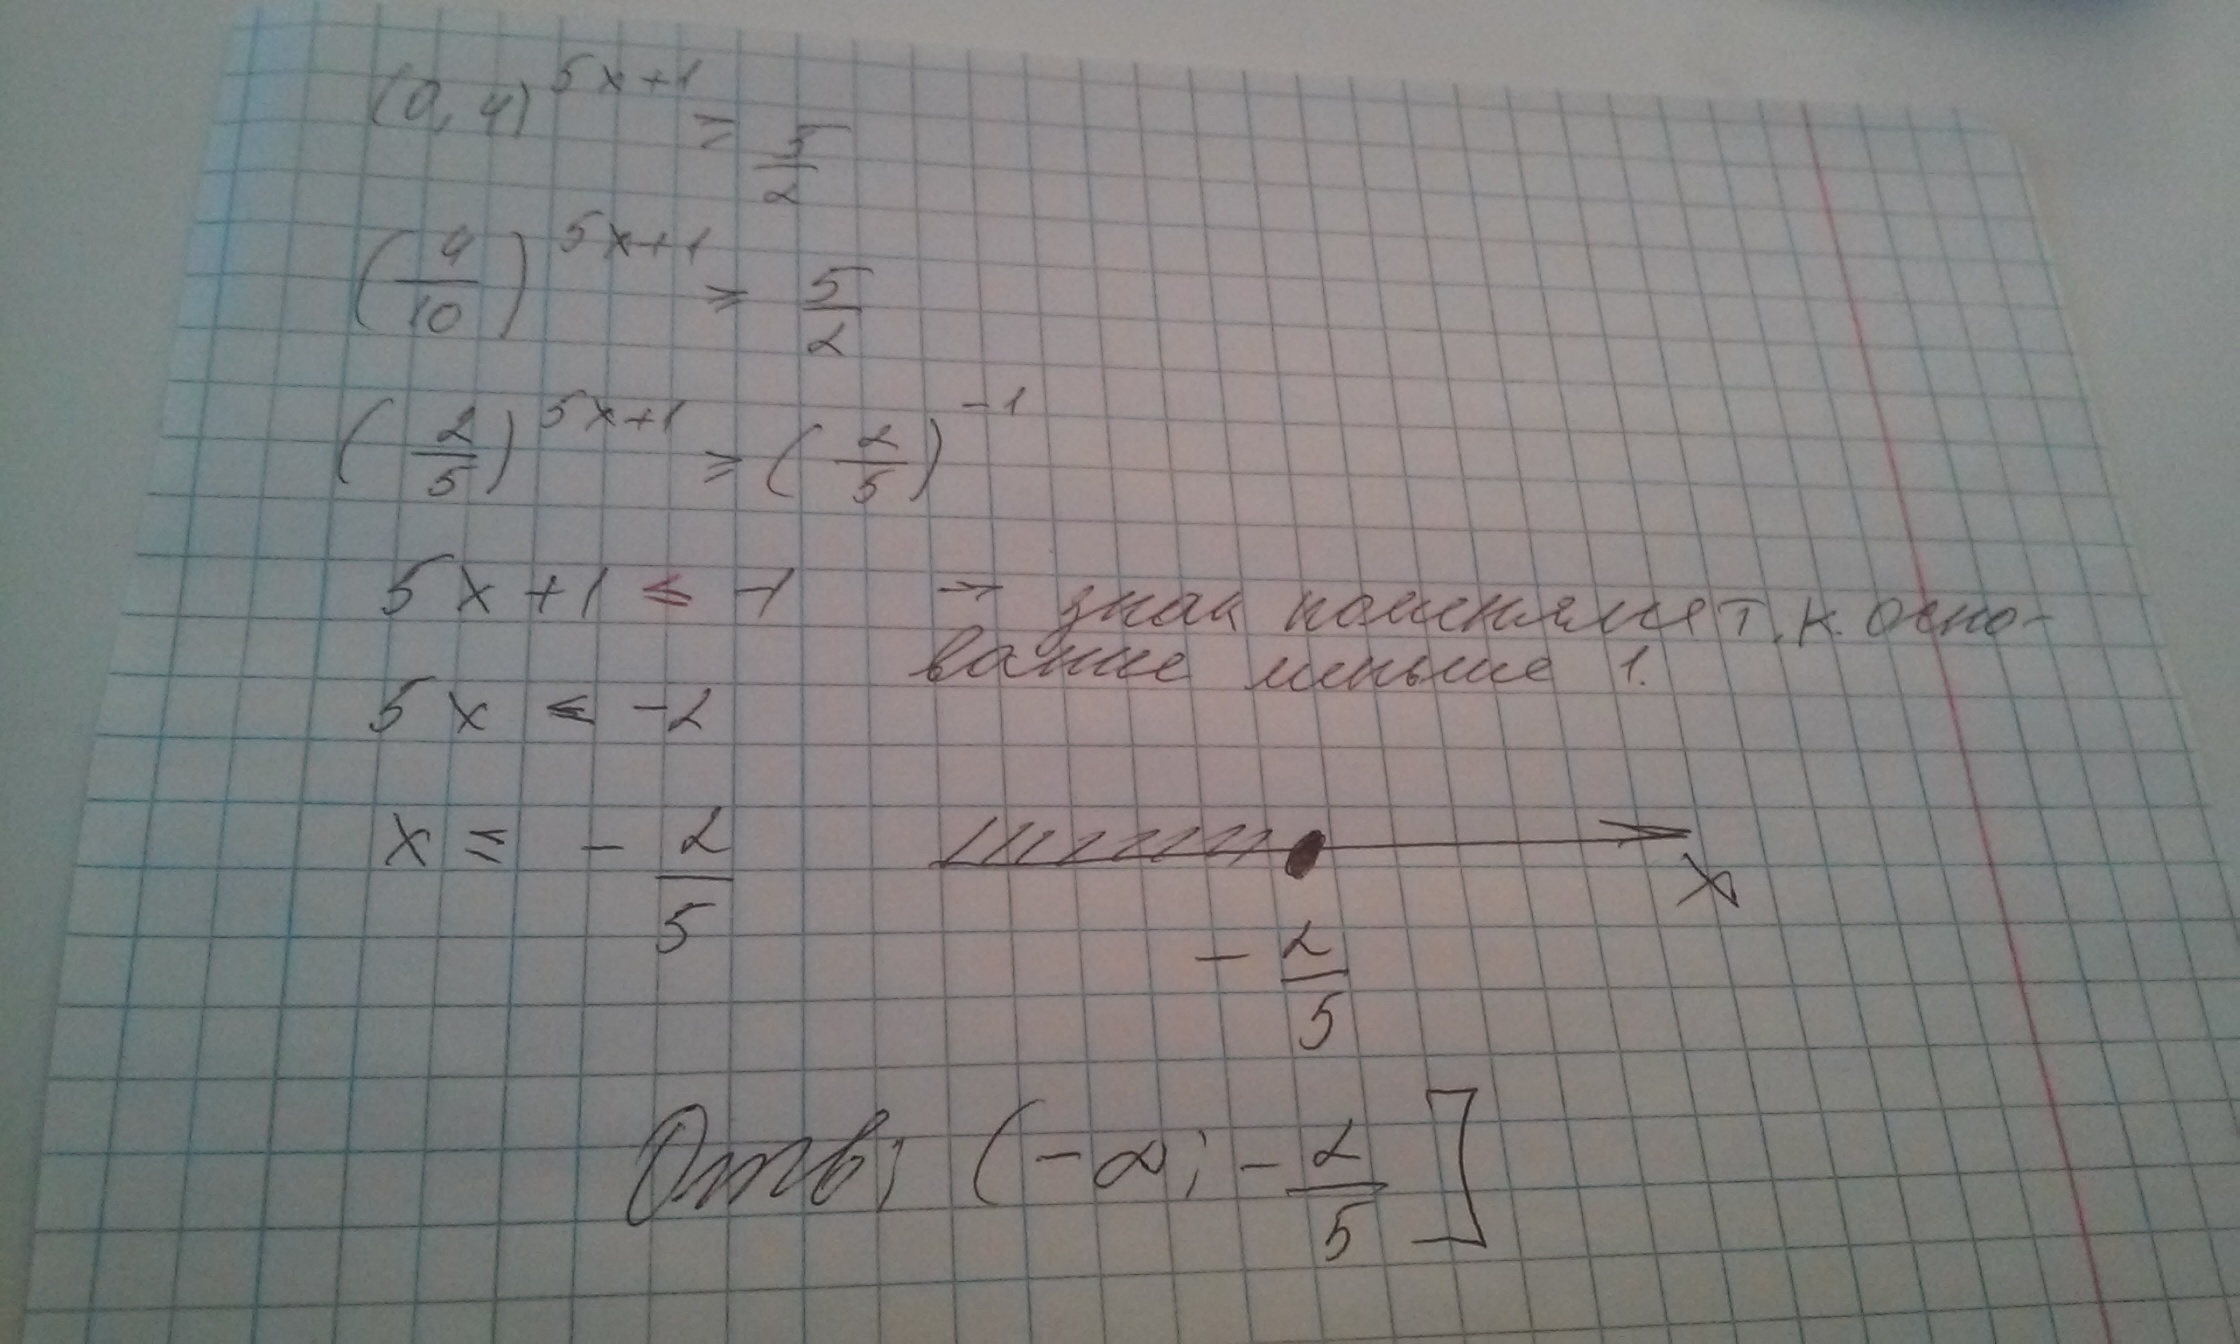 (0,4)^(5x+1) ≥ 5/2
(4/10)^(5x+1) ≥ 5/2
(2/5)^(5x+1) ≥ (2/5)^(-1)
5x+1 ≤ -1 → знак поменялся т.к. осно-
вание меньше 1.
5x ≤ -2
x ≤ - 2/5
x
- 2/5
Отв: (-∞; - 2/5]